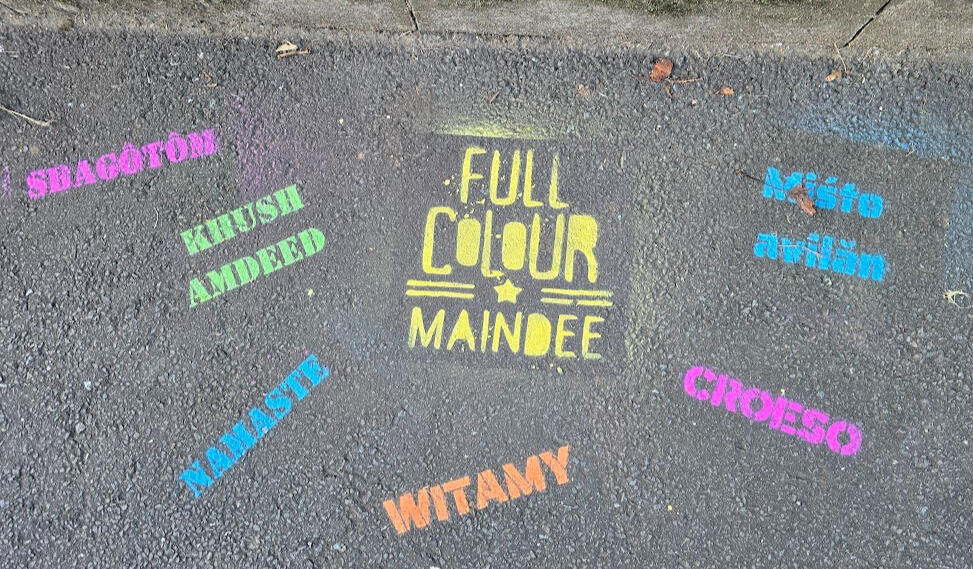 SBAGÔTÔM
KHUSH
AMDEED
NAMASTE
FULL
COLOUR
MAINDEE
WITAMY
Miśto
avilăn
CROESO